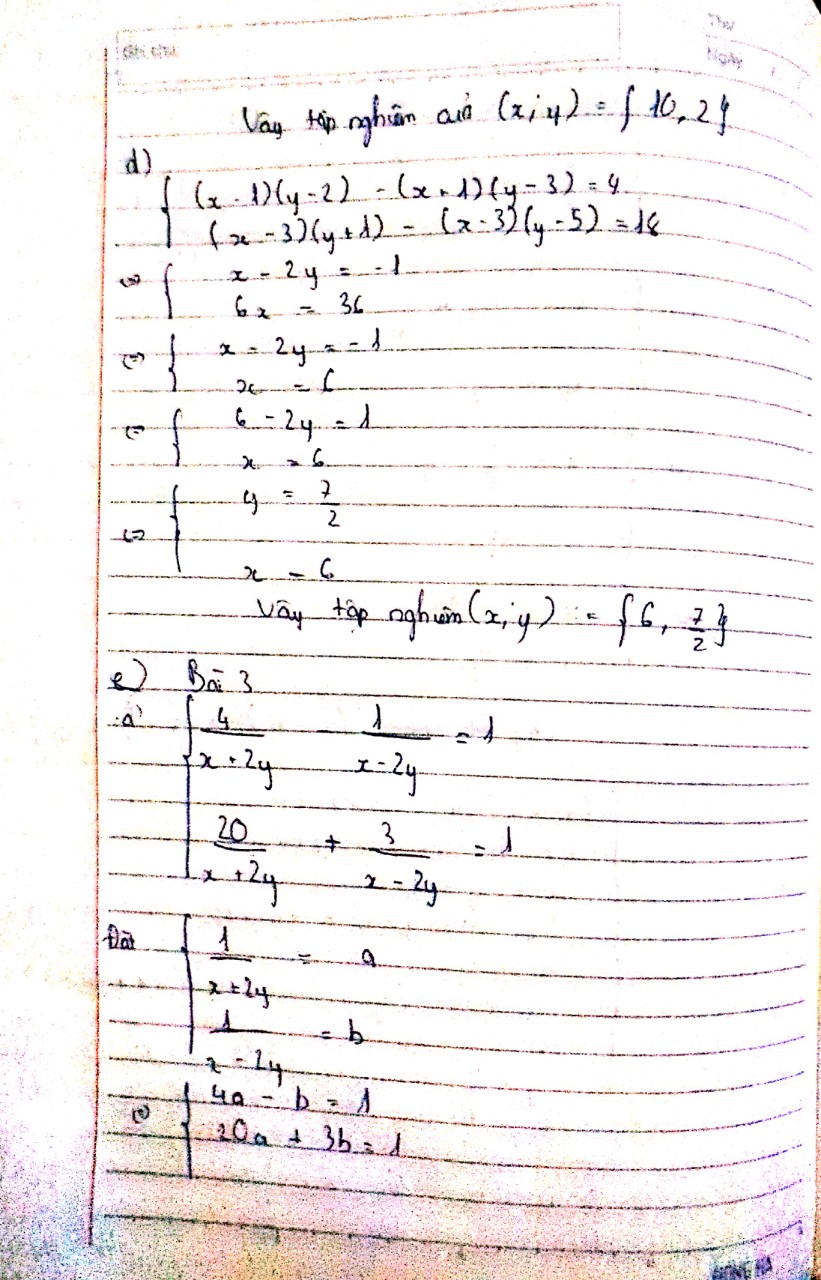 Thứ
Ngày
Vậy tập nghiệm của (x; y) = { 10, 2 }
d)
{ (x - 1)(y - 2) - (x + 1)(y - 3) = 4
(x - 3)(y + 1) - (x - 3)(y - 5) = 18
(=) { x - 2y = -1
6x = 36
(=) { x - 2y = -1
x = 6
(=) { 6 - 2y = 1
x = 6
(=) { y = 7/2
x = 6
Vậy tập nghiệm (x; y) = { 6, 7/2 }
e) Bài 3
a) { 4/(x + 2y) - 1/(x - 2y) = 1
20/(x + 2y) + 3/(x - 2y) = 1
Đặt { 1/(x + 2y) = a
1/(x - 2y) = b
(=) { 4a - b = 1
20a + 3b = 1